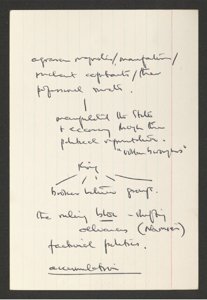 agrarian magnates/manufacturers/
merchant capitalists/their
professional
|
manipulated the State
+ economy through their
political representatives.
King
broker between groups.
the ruling bloc - shifting
alliances
factional politics.
accumulation